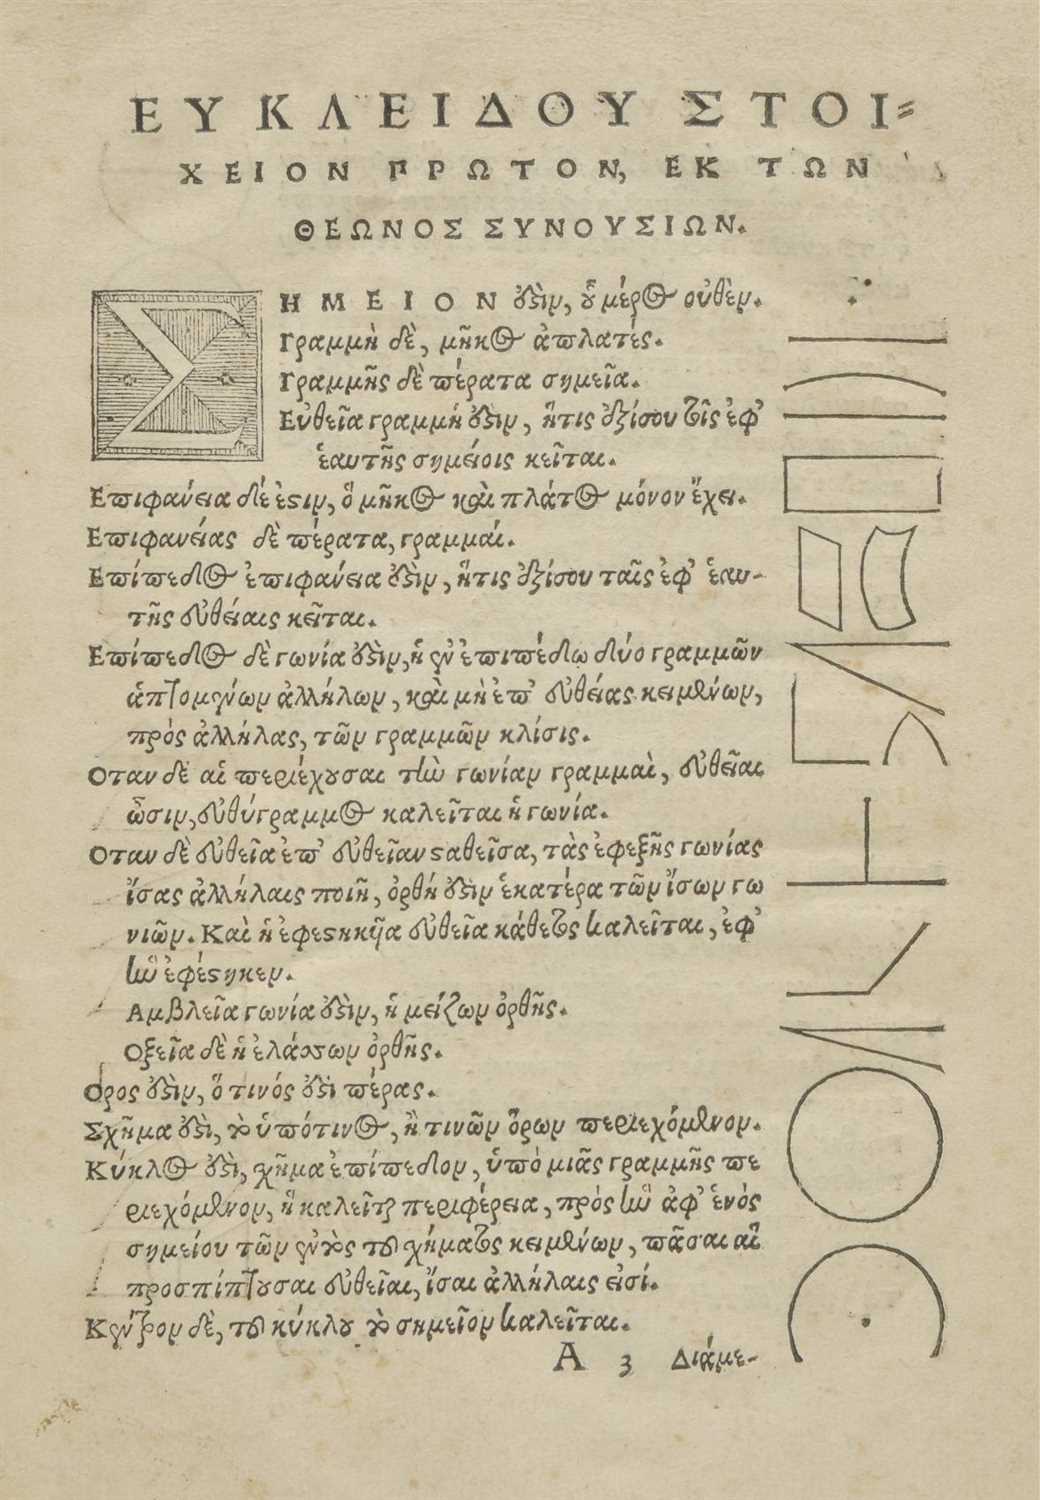 ΕΥΚΛΕΙΔΟΥ ΣΤΟΙ-
ΧΕΙΟΝ ΠΡΩΤΟΝ, ΕΚ ΤΩΝ
ΘΕΩΝΟΣ ΣΥΝΟΥΣΙΩΝ.
ΣΗΜΕΙΟΝ ὅ̓ςὶν, οὗ μέρος οὐθὲν.
Γραμμὴ δὲ, μῆκος ἀπλατές.
Γραμμῆς δὲ πέρατα σημεῖα.
Εὐθεῖα γραμμή ἐςὶν, ἥτις ἐξίσου τοῖς ἐφ’
ἑαυτῆς σημείοις κεῖται.
Επιφάνεια δέ ἐςιν, ὃ μῆκος καὶ πλάτος μόνον ἔχει.
Επιφανείας δὲ πέρατα, γραμμαί.
Επίπεδος ἐπιφάνεια ἐςὶν, ἥτις ἐξίσου ταῖς ἐφ’ ἑαυ-
τῆς εὐθείαις κεῖται.
Επίπεδος δὲ γωνία ἐςὶν, ἡ ἐν ἐπιπέδῳ δύο γραμμῶν
ἁπτομένων ἀλλήλων, καὶ μὴ ἐπ’ εὐθείας κειμένων,
πρὸς ἀλλήλας, τῶν γραμμῶν κλίσις.
Οταν δὲ αἱ περιέχουσαι τὴν γωνίαν γραμμαὶ, εὐθεῖαι
ὦσιν, εὐθύγραμμος καλεῖται ἡ γωνία.
Οταν δὲ εὐθεῖα ἐπ’ εὐθεῖαν ςαθεῖσα, τὰς ἐφεξῆς γωνίας
ἴσας ἀλλήλαις ποιῆ, ὀρθή ἐςὶν ἑκατέρα τῶν ἴσων γω
νιῶν. Καὶ ἡ ἐφεςηκῦα εὐθεῖα κάθετος καλεῖται, ἐφ’
ἣν ἐφέςηκεν.
Αμβλεῖα γωνία ἐςὶν, ἡ μείζων ὀρθῆς.
Οξεῖα δὲ ἡ ἐλάσσων ὀρθῆς.
Ορος ἐςὶν, ὅ τινός ἐςι πέρας.
Σχῆμα ἐςὶ, τὸ ὑπό τινος, ἤ τινῶν ὅρων περιεχόμενον.
Κύκλος ἐςὶ, σχῆμα ἐπίπεδον, ὑπὸ μιᾶς γραμμῆς πε
ριεχόμενον, ἣ καλεῖται περιφέρεια, πρὸς ἣν ἀφ’ ἑνὸς
σημείου τῶν ἐντὸς τοῦ σχήματος κειμένων, πᾶσαι αἱ
προσπίπτουσαι εὐθεῖαι, ἴσαι ἀλλήλαις εἰσί.
Κέντρον δὲ, τοῦ κύκλου τὸ σημεῖον καλεῖται.
Α 3 Διάμε-